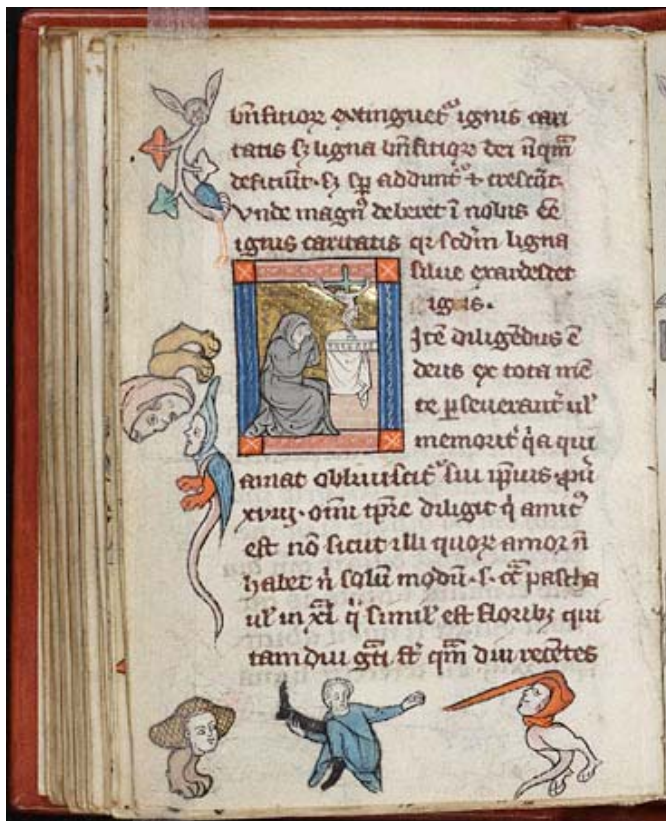 bñfitioꝝ extinguet᷑ ignis cari
tatis sꝫ ligna bñfitioꝝ dei nq̄m
deficiūt. sꝫ sꝑ addunt᷑ ⁊ crescūt.
Vnde magn᷒ deberet ī nobis eē
ignis caritatis qꝛ scd̄m ligna
silue exardescet
ignis.
Itē diligēdus ē
deus ex tota mē
te ꝑseuerant᷑ ul'
memorit᷑ q̇a qui
amat obliuiscit᷑ sui ip̄ius
xviij. om̄i tp̄re diligit q̇ amic᷒
est nō sicut illi quoꝝ amor ñ
habet ñ solū modū .s. pascha
ul' in xl q̇ simil' est floribꝫ qui
tam diu gͣti st̄ qm̄ diu recētes